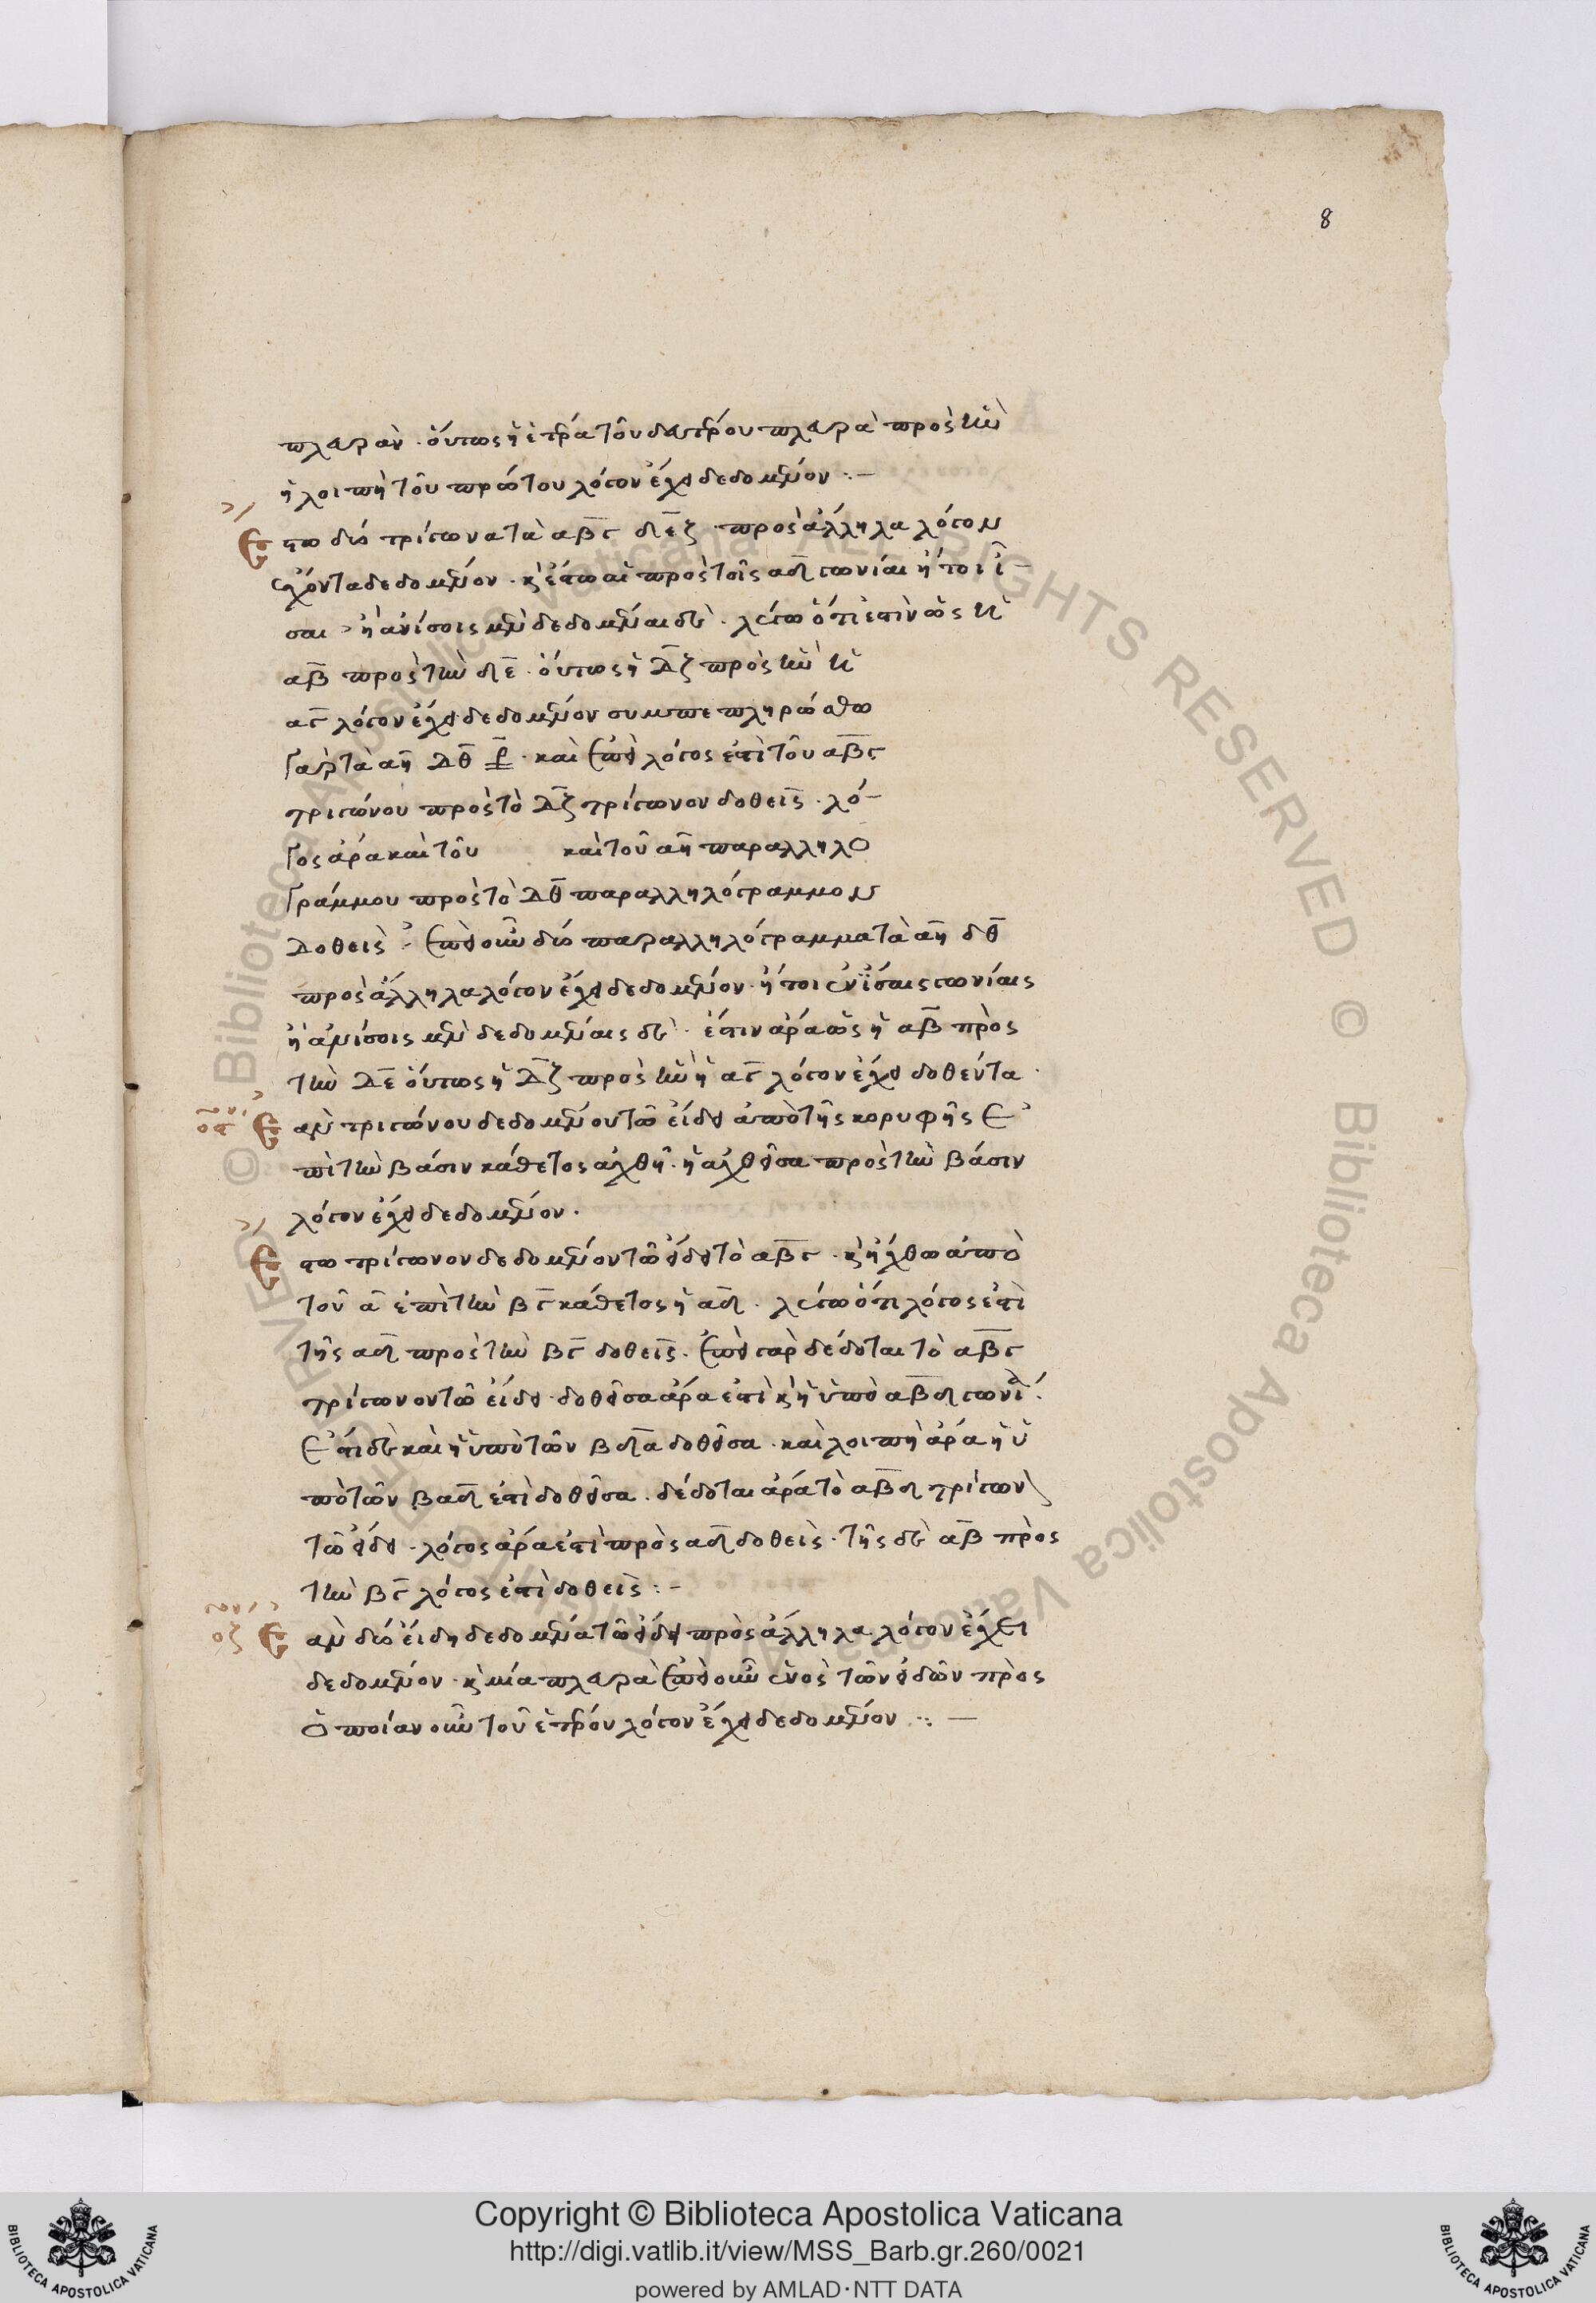 8
πλευρὰν · οὕτως ἡ ἑτέρα τοῦ δευτέρου πλευρὰ πρὸς τὴν
ἡ λοιπὴ τοῦ πρώτου λόγον ἔχει δεδομένον :–
Ἔστω δύο τρίγωνα τὰ αβγ δεζ · πρὸς ἄλληλα λόγον
ἔχοντα δεδομένον · κ ἔστω αἱ πρὸς τοῖς αδ γωνίαι ἤτοι ἴ–
σαι ἢ ἀνίσοις μὲν δεδομέναι δὲ · λέγω ὅτι ἐστὶν ὡς ἡ
αβ πρὸς τὴν δε · οὕτως ἡ δζ πρὸς τὴν ἡ
αγ λόγον ἔχει δεδομένον συμπεπληρώσθω
γὰρ τὰ αη δθ · καὶ ἐπεὶ λόγος ἐστὶ τοῦ αβγ
τριγώνου πρὸς τὸ δζ τρίγωνον δοθείς · λό–
γος ἄρα καὶ τοῦ καὶ τοῦ αη παραλληλο
γράμμου πρὸς τὸ δθ παραλληλόγραμμον
δοθεὶς · ἐπεὶ οὖν δύο παραλληλόγραμμα τὰ αη δθ
πρὸς ἄλληλα λόγον ἔχει δεδομένον · ἤτοι ἐν ἴσαις γωνίαις
ἢ ἀνίσοις μὲν δεδομέναις δὲ · ἔστιν ἄρα ὡς ἡ αβ πρὸς
τὴν δε οὕτως ἡ δζ πρὸς τὴν ἡ αγ λόγον ἔχει δοθέντα ·
ος Ἐὰν τριγώνου δεδομένου τῶ εἴδει ἀπὸ τῆς κορυφῆς ἐ
πὶ τὴν βάσιν κάθετος ἀχθῆ · ἡ ἀχθεῖσα πρὸς τὴν βάσιν
λόγον ἔχει δεδομένον ·
Ἔστω τρίγωνον δεδομένον τῶ εἴδει τὸ αβγ · κ ἤχθω ἀπὸ
τοῦ α ἐπὶ τὴν βγ κάθετος ἡ αδ · λέγω ὅτι λόγος ἐστὶ
τῆς αδ πρὸς τὴν βγ δοθείς · ἐπεὶ γὰρ δέδοται τὸ αβγ
τρίγωνον τῶ εἴδει · δοθεῖσα ἄρα ἐστὶ κ ἡ ὑπὸ αβδ γωνία ·
Ἔστι δὲ καὶ ἡ ὑπὸ τῶν βδα δοθεῖσα · καὶ λοιπὴ ἄρα ἡ ὑ
πὸ τῶν βαδ ἐστὶ δοθεῖσα · δέδοται ἄρα τὸ αβδ τρίγωνον
τῶ εἴδει · λόγος ἄρα ἐστὶ πρὸς αδ δοθεὶς · τῆς δὲ αβ πρὸς
τὴν βγ λόγος ἐστὶ δοθείς :–
οζ Ἐὰν δύο εἴδη δεδομένα τῶ εἴδει πρὸς ἄλληλα λόγον ἔχει
δεδομένον · κ μία πλευρὰ ἐπεὶ οὖν ἑνὸς τῶν εἰδῶν πρὸς
ὁποίαν οὖν τοῦ ἑτέρου λόγον ἔχει δεδομένον :· —
Copyright © Biblioteca Apostolica Vaticana
http://digi.vatlib.it/view/MSS_Barb.gr.260/0021
powered by AMLAD·NTT DATA